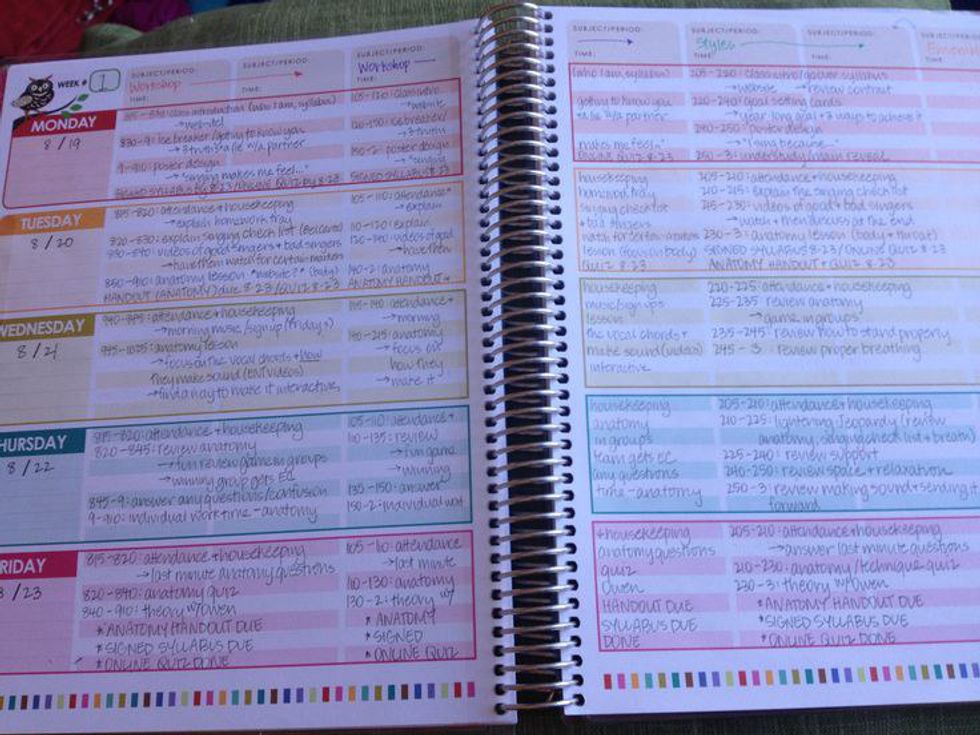 WEEK # 1
SUBJECT/PERIOD:
Workshop
TIME:
SUBJECT/PERIOD:
TIME:
SUBJECT/PERIOD:
Workshop
TIME:
MONDAY
8/19
class introduction (who I am, syllabus)
→ website
830-9: ice breaker/getting to know you
→ 3 truths + a lie w/a partner
9-910: poster design
→ "singing makes me feel..."
SIGNED SYLLABUS 8-23/ONLINE QUIZ by 8-23
105-120: class intro
→ website
→ 3 truths
150-2: poster design
→ "singing
SIGNED SYLLABUS 8-23
TUESDAY
8/20
815-820: attendance + housekeeping
→ explain homework tray
820-830: explain singing check list
830-850: videos of good singers + bad singers
→ have them watch for certain markers
850-910: anatomy lesson *website?* (body)
HANDOUT (ANATOMY) due 8-23/QUIZ 8-23
105-110: attendance
→ explain
110-120: explain
120-140: videos of good
→ have them
140-2: anatomy
ANATOMY HANDOUT +
WEDNESDAY
8/21
attendance + housekeeping
→ morning music/signup (Fridays)
945-1025: anatomy lesson
→ focus on the vocal chords + how
they make sound (ENT videos)
→ find a way to make it interactive
attendance +
→ morning
anatomy
→ focus on
how they
→ make it
HURSDAY
8/22
815-820: attendance + housekeeping
820-845: review anatomy
→ fun review game in groups
→ winning group gets EC
845-9: answer any questions/confusion
9-910: individual work time - anatomy
105-110: attendance +
110-135: review
→ fun game
→ winning
135-150: answer
150-2: individual work
RIDAY
8/23
815-820: attendance + housekeeping
→ last minute anatomy questions
820-840: anatomy quiz
840-910: theory w/Owen
* ANATOMY HANDOUT DUE
* SIGNED SYLLABUS DUE
* ONLINE QUIZ DONE
105-110: attendance
→ last minute
110-130: anatomy
130-2: theory w/
* ANATOMY
* SIGNED
* ONLINE QUIZ
SUBJECT/PERIOD:
TIME:
SUBJECT/PERIOD:
Styles
TIME:
SUBJECT/PERIOD:
TIME:
SUBJECT/PERIOD:
TIME:
(who I am, syllabus)
getting to know you
+ a lie w/a partner
makes me feel..."
ONLINE QUIZ 8-23
205-220: class intro/go over syllabus
→ website → review contract
220-240: goal setting cards
→ year long goal + 3 ways to achieve it
240-250: poster design
→ "I sing because..."
250-3: understudy/main reveal
housekeeping
homework tray
singing check list
+ bad singers
watch for certain markers
lesson
QUIZ 8-23
205-210: attendance + housekeeping
210-215: explain the singing check list
215-230: videos of good + bad singers
→ watch + then discuss at the end
230-3: anatomy lesson (body + throat)
SIGNED SYLLABUS 8-23/ONLINE QUIZ 8-23
ANATOMY HANDOUT + QUIZ 8-23
housekeeping
music/sign ups
lesson
the vocal chords +
make sound (videos)
interactive
attendance + housekeeping
225-235: review anatomy
→ game in groups
235-245: review how to stand properly
245-3: review proper breathing
housekeeping
anatomy
in groups
team gets EC
any questions
time - anatomy
205-210: attendance + housekeeping
210-225: lightening Jeopardy (review
anatomy, singing check list + breath)
225-240: review support
240-250: review space + relaxation
250-3: review making sound + sending it
forward
+ housekeeping
anatomy questions
quiz
Owen
HANDOUT DUE
SYLLABUS DUE
DONE
205-210: attendance + housekeeping
→ answer last minute questions
210-230: anatomy/technique quiz
230-3: theory w/Owen
* ANATOMY HANDOUT DUE
* SIGNED SYLLABUS DUE
* ONLINE QUIZ DONE